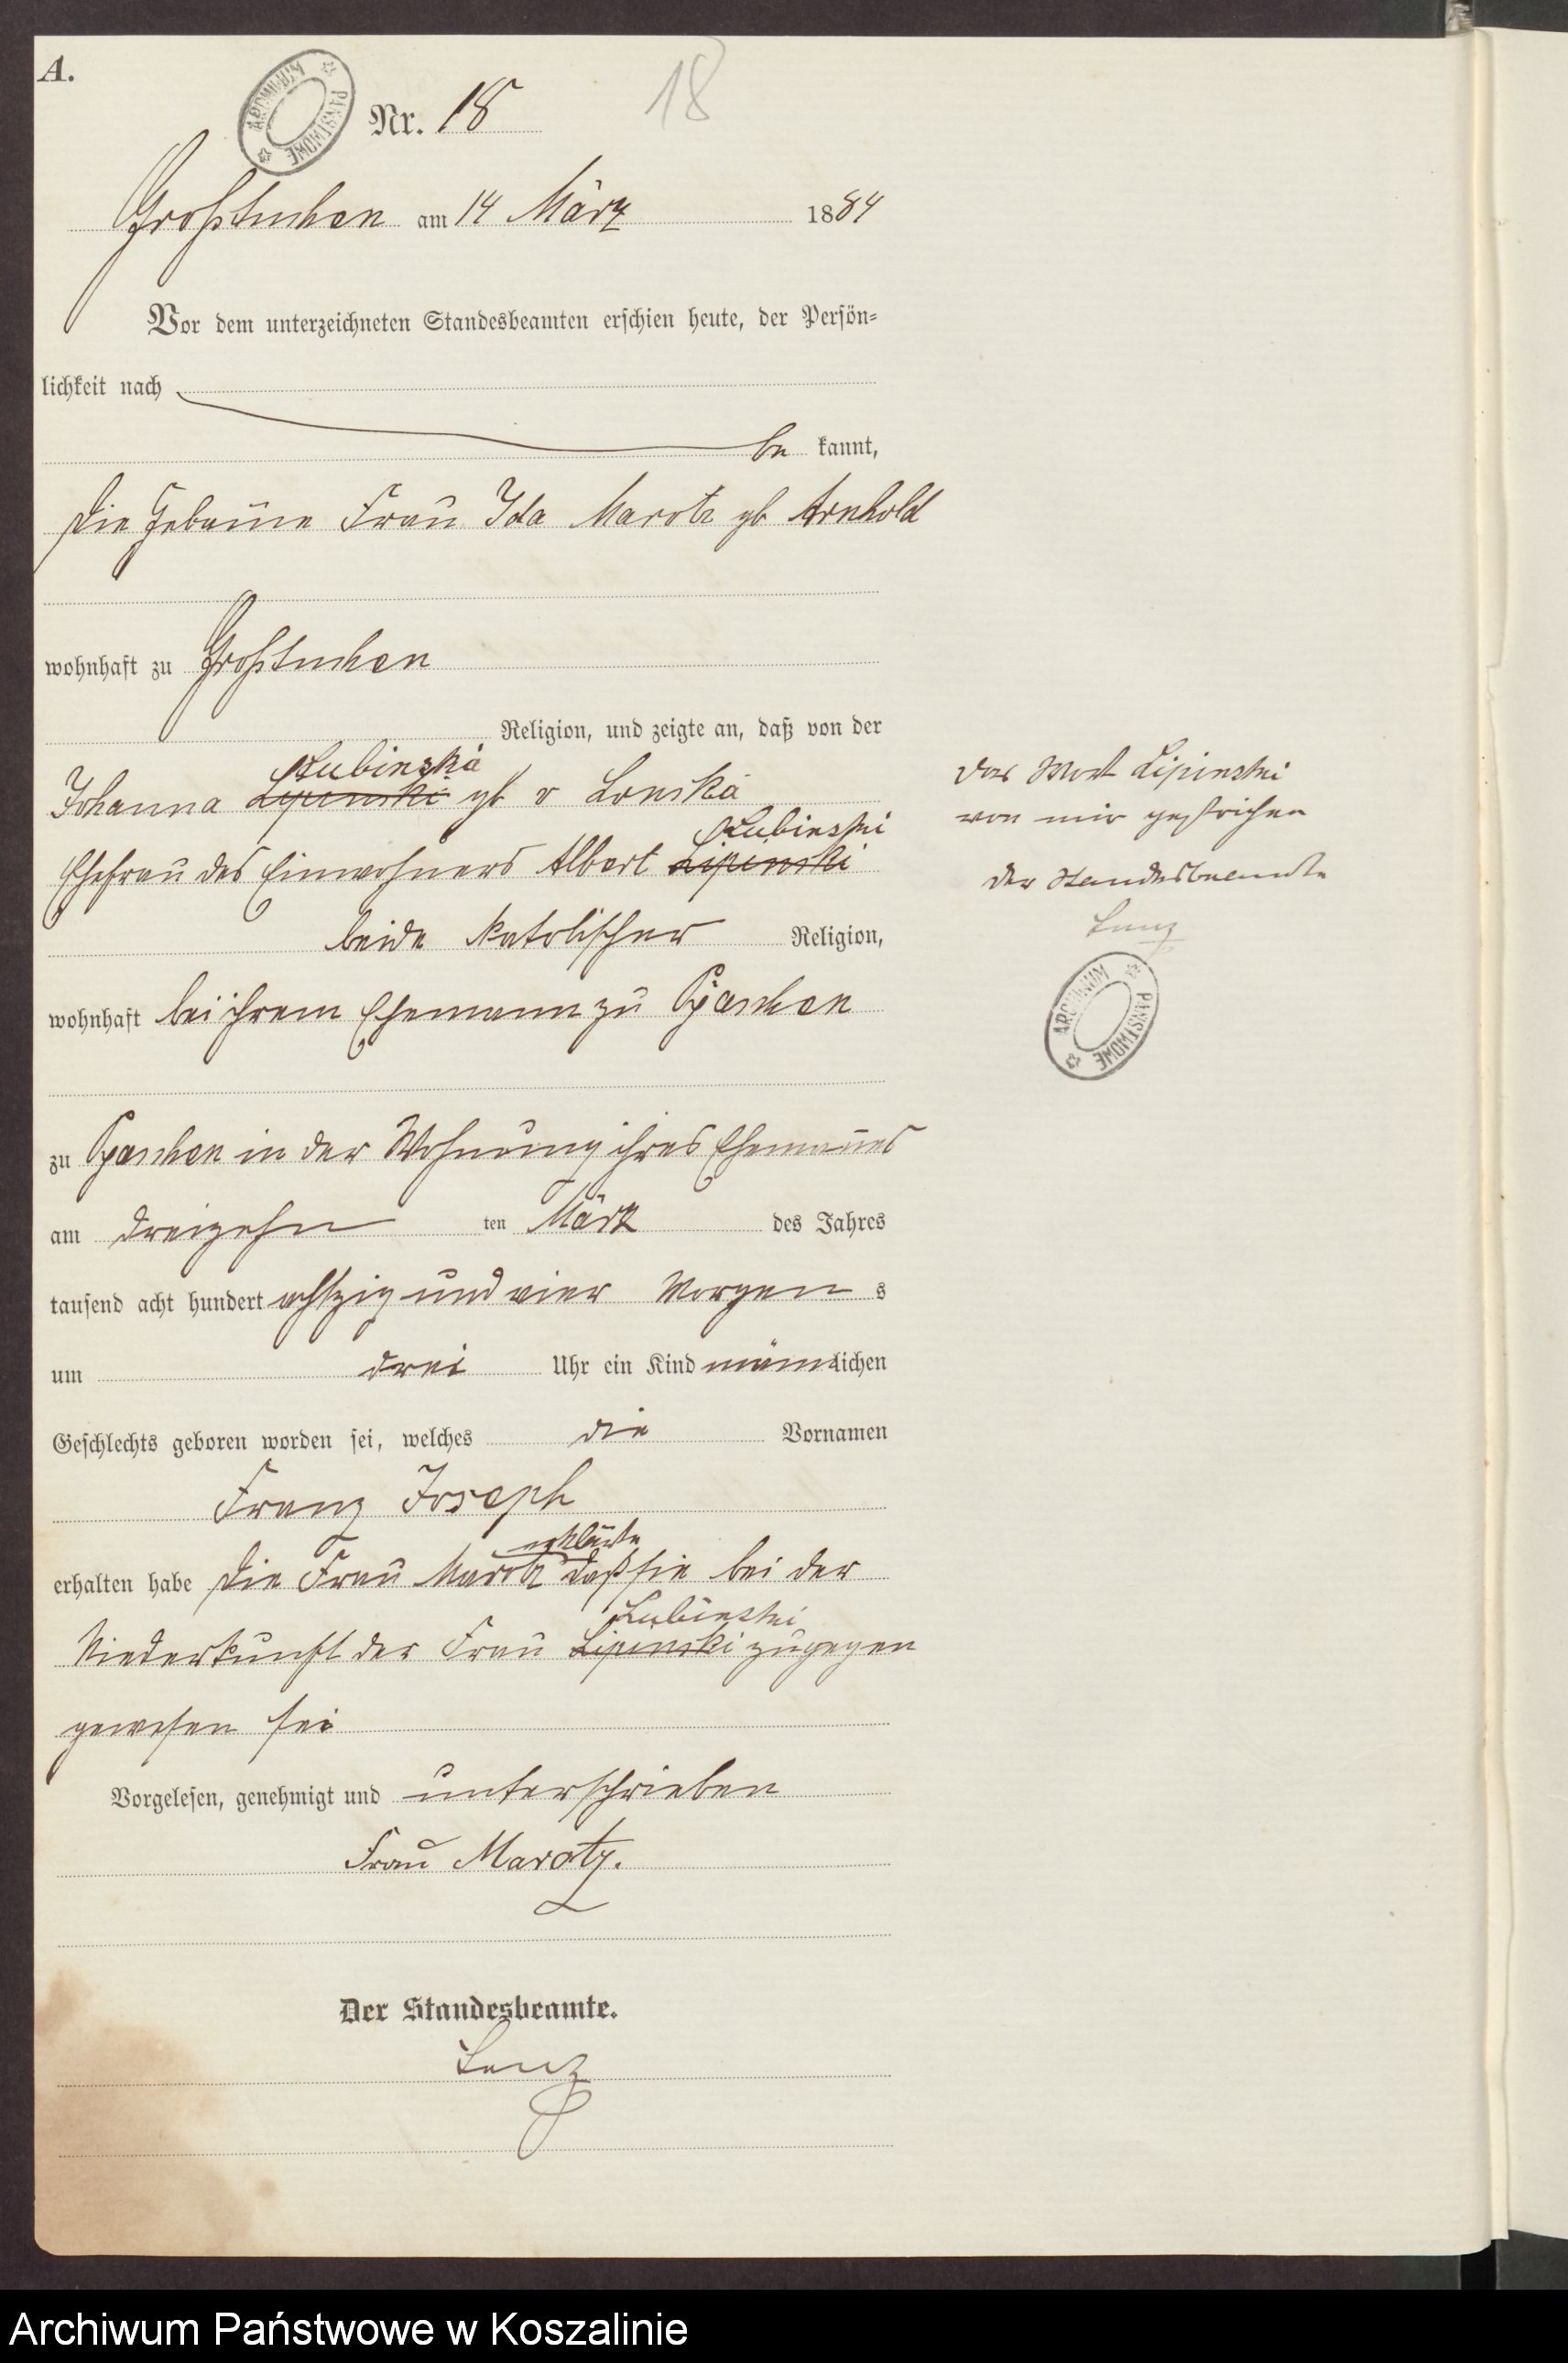 A.
ARCHIWUM PAŃSTWOWE
Nr. 18
18
Großtuchen am 14 März 1884
Vor dem unterzeichneten Standesbeamten erschien heute, der Persön-
lichkeit nach
be kannt,
die Hebamme Frau Ida Marotz gb Arnhold
wohnhaft zu Großtuchen
Religion, und zeigte an, daß von der
Lubinska
Johanna Lipinski gb v Lonska
Lubinski
Ehefrau des Einwohners Albert Lipinski
beide katolischer Religion,
wohnhaft bei ihrem Ehemann zu Pyaschen
zu Pyaschen in der Wohnung ihres Ehemannes
am dreizehn ten März des Jahres
tausend acht hundert achtzig und vier Morgen s
um drei Uhr ein Kind männlichen
Geschlechts geboren worden sei, welches die Vornamen
Franz Joseph
erklärte
erhalten habe die Frau Marotz daß sie bei der
Lubinski
Niederkunft der Frau Lipinski zugegen
gewesen sei
Vorgelesen, genehmigt und unterschrieben
Frau Marotz.
Der Standesbeamte.
Lenz
Das Wort Lipinski
von mir gestrichen
Der Standesbeamte
Lenz
ARCHIWUM PAŃSTWOWE
Archiwum Państwowe w Koszalinie